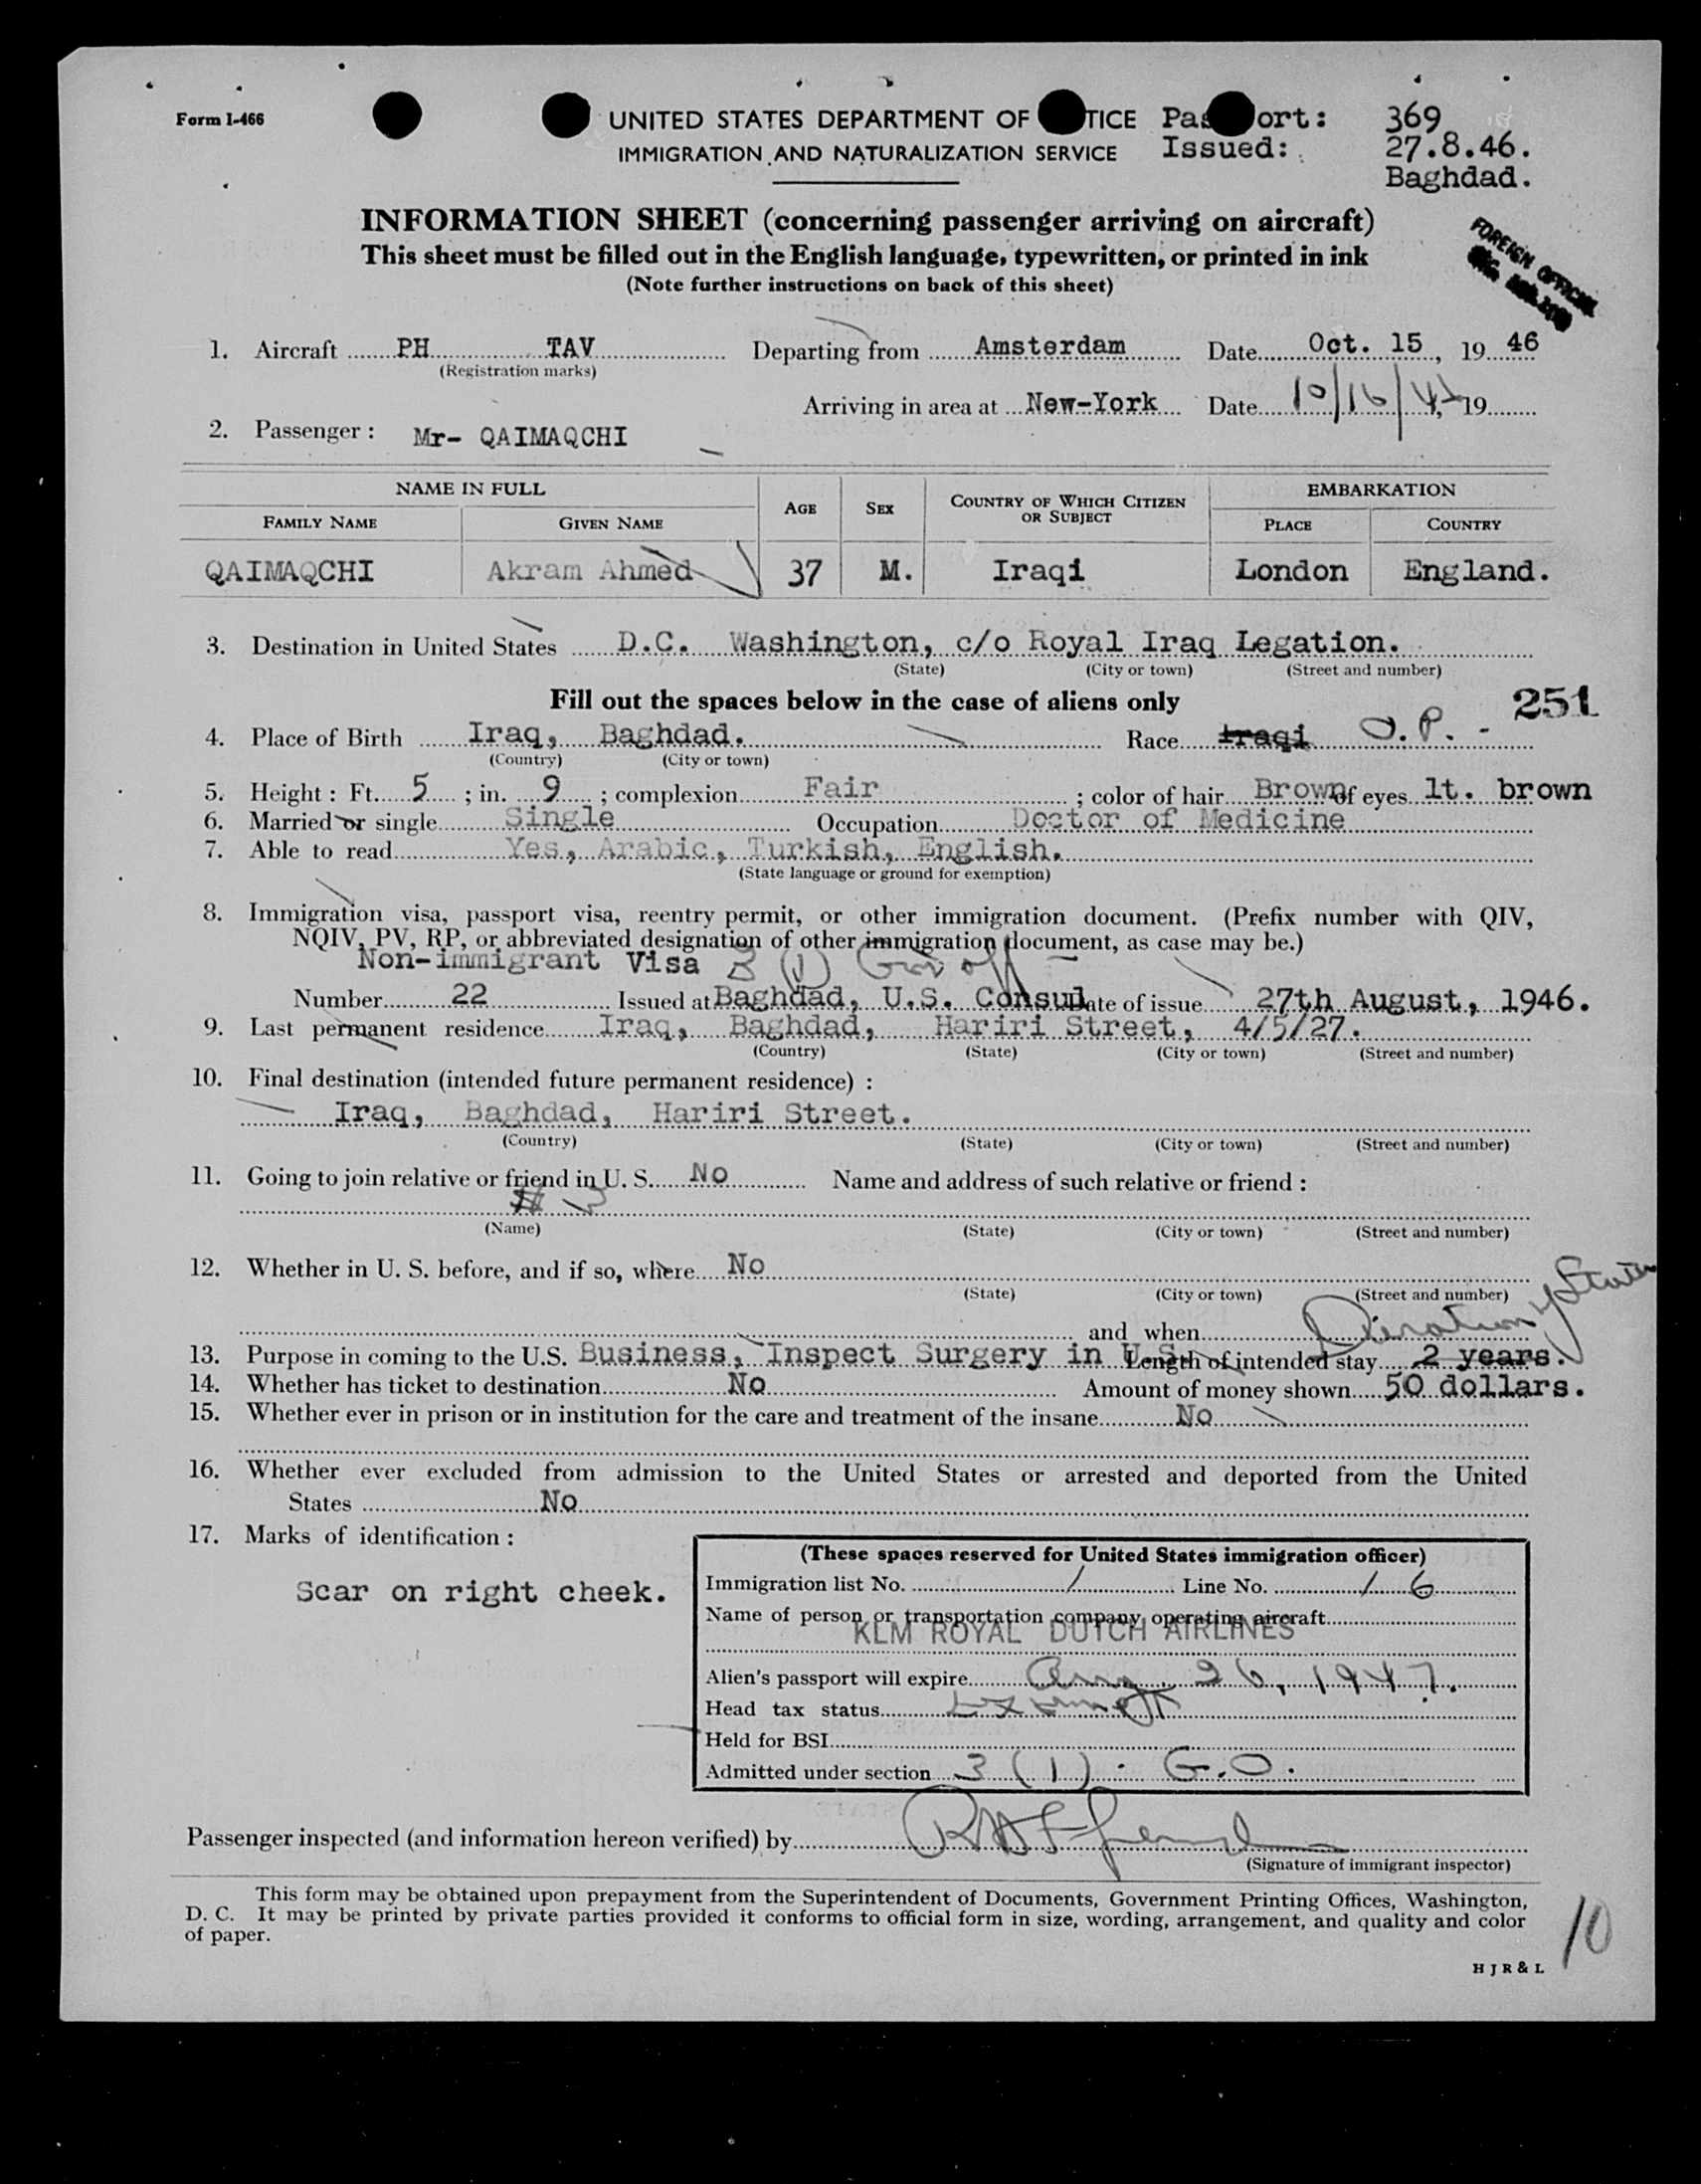 Form I-466
UNITED STATES DEPARTMENT OF TICE
IMMIGRATION AND NATURALIZATION SERVICE
Pas ort: 369
Issued: 27.8.46.
Baghdad.
INFORMATION SHEET (concerning passenger arriving on aircraft)
This sheet must be filled out in the English language, typewritten, or printed in ink
(Note further instructions on back of this sheet)
FOREIGN OFFICIAL
1. Aircraft PH TAV Departing from Amsterdam Date Oct. 15, 19 46
(Registration marks)
Arriving in area at New-York Date 10/16/4 , 19
2. Passenger : Mr- QAIMAQCHI
NAME IN FULL
FAMILY NAME GIVEN NAME AGE SEX COUNTRY OF WHICH CITIZEN OR SUBJECT EMBARKATION PLACE COUNTRY
QAIMAQCHI Akram Ahmed 37 M. Iraqi London England.
3. Destination in United States D.C. Washington, c/o Royal Iraq Legation.
(State) (City or town) (Street and number)
Fill out the spaces below in the case of aliens only
251
4. Place of Birth Iraq, Baghdad. Race Iraqi O.P. -
(Country) (City or town)
5. Height : Ft. 5 ; in. 9 ; complexion Fair ; color of hair Brown of eyes lt. brown
6. Married or single Single Occupation Doctor of Medicine
7. Able to read Yes, Arabic, Turkish, English.
(State language or ground for exemption)
8. Immigration visa, passport visa, reentry permit, or other immigration document. (Prefix number with QIV,
NQIV, PV, RP, or abbreviated designation of other immigration document, as case may be.)
Non-immigrant Visa 3 (1) Gov off
Number 22 Issued at Baghdad, U.S. Consul Date of issue 27th August, 1946.
9. Last permanent residence Iraq, Baghdad, Hariri Street, 4/5/27.
(Country) (State) (City or town) (Street and number)
10. Final destination (intended future permanent residence) :
Iraq, Baghdad, Hariri Street.
(Country) (State) (City or town) (Street and number)
11. Going to join relative or friend in U. S. No Name and address of such relative or friend :
(Name) (State) (City or town) (Street and number)
12. Whether in U. S. before, and if so, where No
(State) (City or town) (Street and number)
and when
Duration of Status
13. Purpose in coming to the U.S. Business, Inspect Surgery in U.S. Length of intended stay 2 years.
14. Whether has ticket to destination No Amount of money shown 50 dollars.
15. Whether ever in prison or in institution for the care and treatment of the insane No
16. Whether ever excluded from admission to the United States or arrested and deported from the United
States No
17. Marks of identification :
Scar on right cheek.
(These spaces reserved for United States immigration officer)
Immigration list No. 1 Line No. 16
Name of person or transportation company operating aircraft
KLM ROYAL DUTCH AIRLINES
Alien's passport will expire Aug. 26, 1947.
Head tax status Exempt
Held for BSI
Admitted under section 3 (1) · G.O.
Passenger inspected (and information hereon verified) by
(Signature of immigrant inspector)
This form may be obtained upon prepayment from the Superintendent of Documents, Government Printing Offices, Washington,
D. C. It may be printed by private parties provided it conforms to official form in size, wording, arrangement, and quality and color
of paper.
10
H J R & L